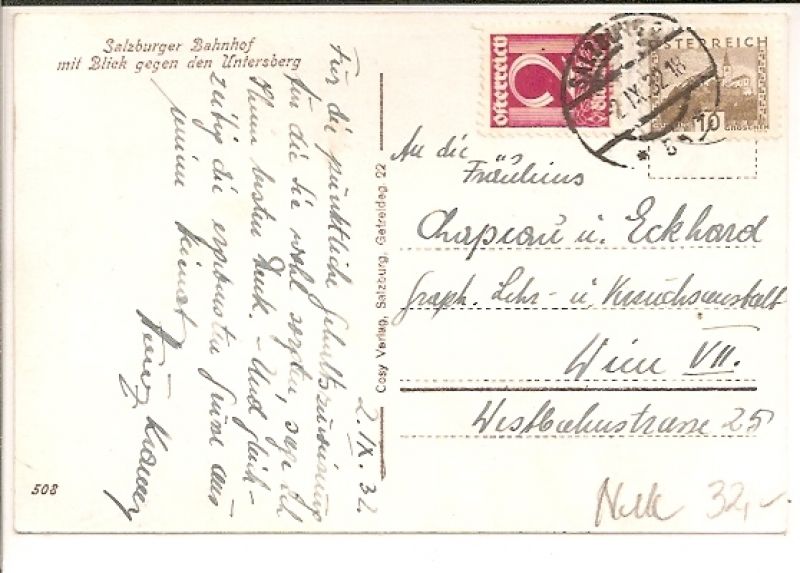 Salzburger Bahnhof
mit Blick gegen den Untersberg
Für die pünktliche Gehaltszuweisung
für die Sie wohl sorgten, sage ich
Ihnen besten Dank. - Und gleich-
zeitig die ergebensten Grüsse aus
meiner Heimat
2.IX.32.
508
Cosy Verlag, Salzburg, Getreideg. 22
Österreich
2
SALZBURG
2.IX.32.18
* 5a
ÖSTERREICH
10
GROSCHEN
An die
Fräuleins
Chapeau u. Eckhard
Graph. Lehr- u. Versuchsanstalt
Wien VII.
Westbahnstrasse 25
32,-